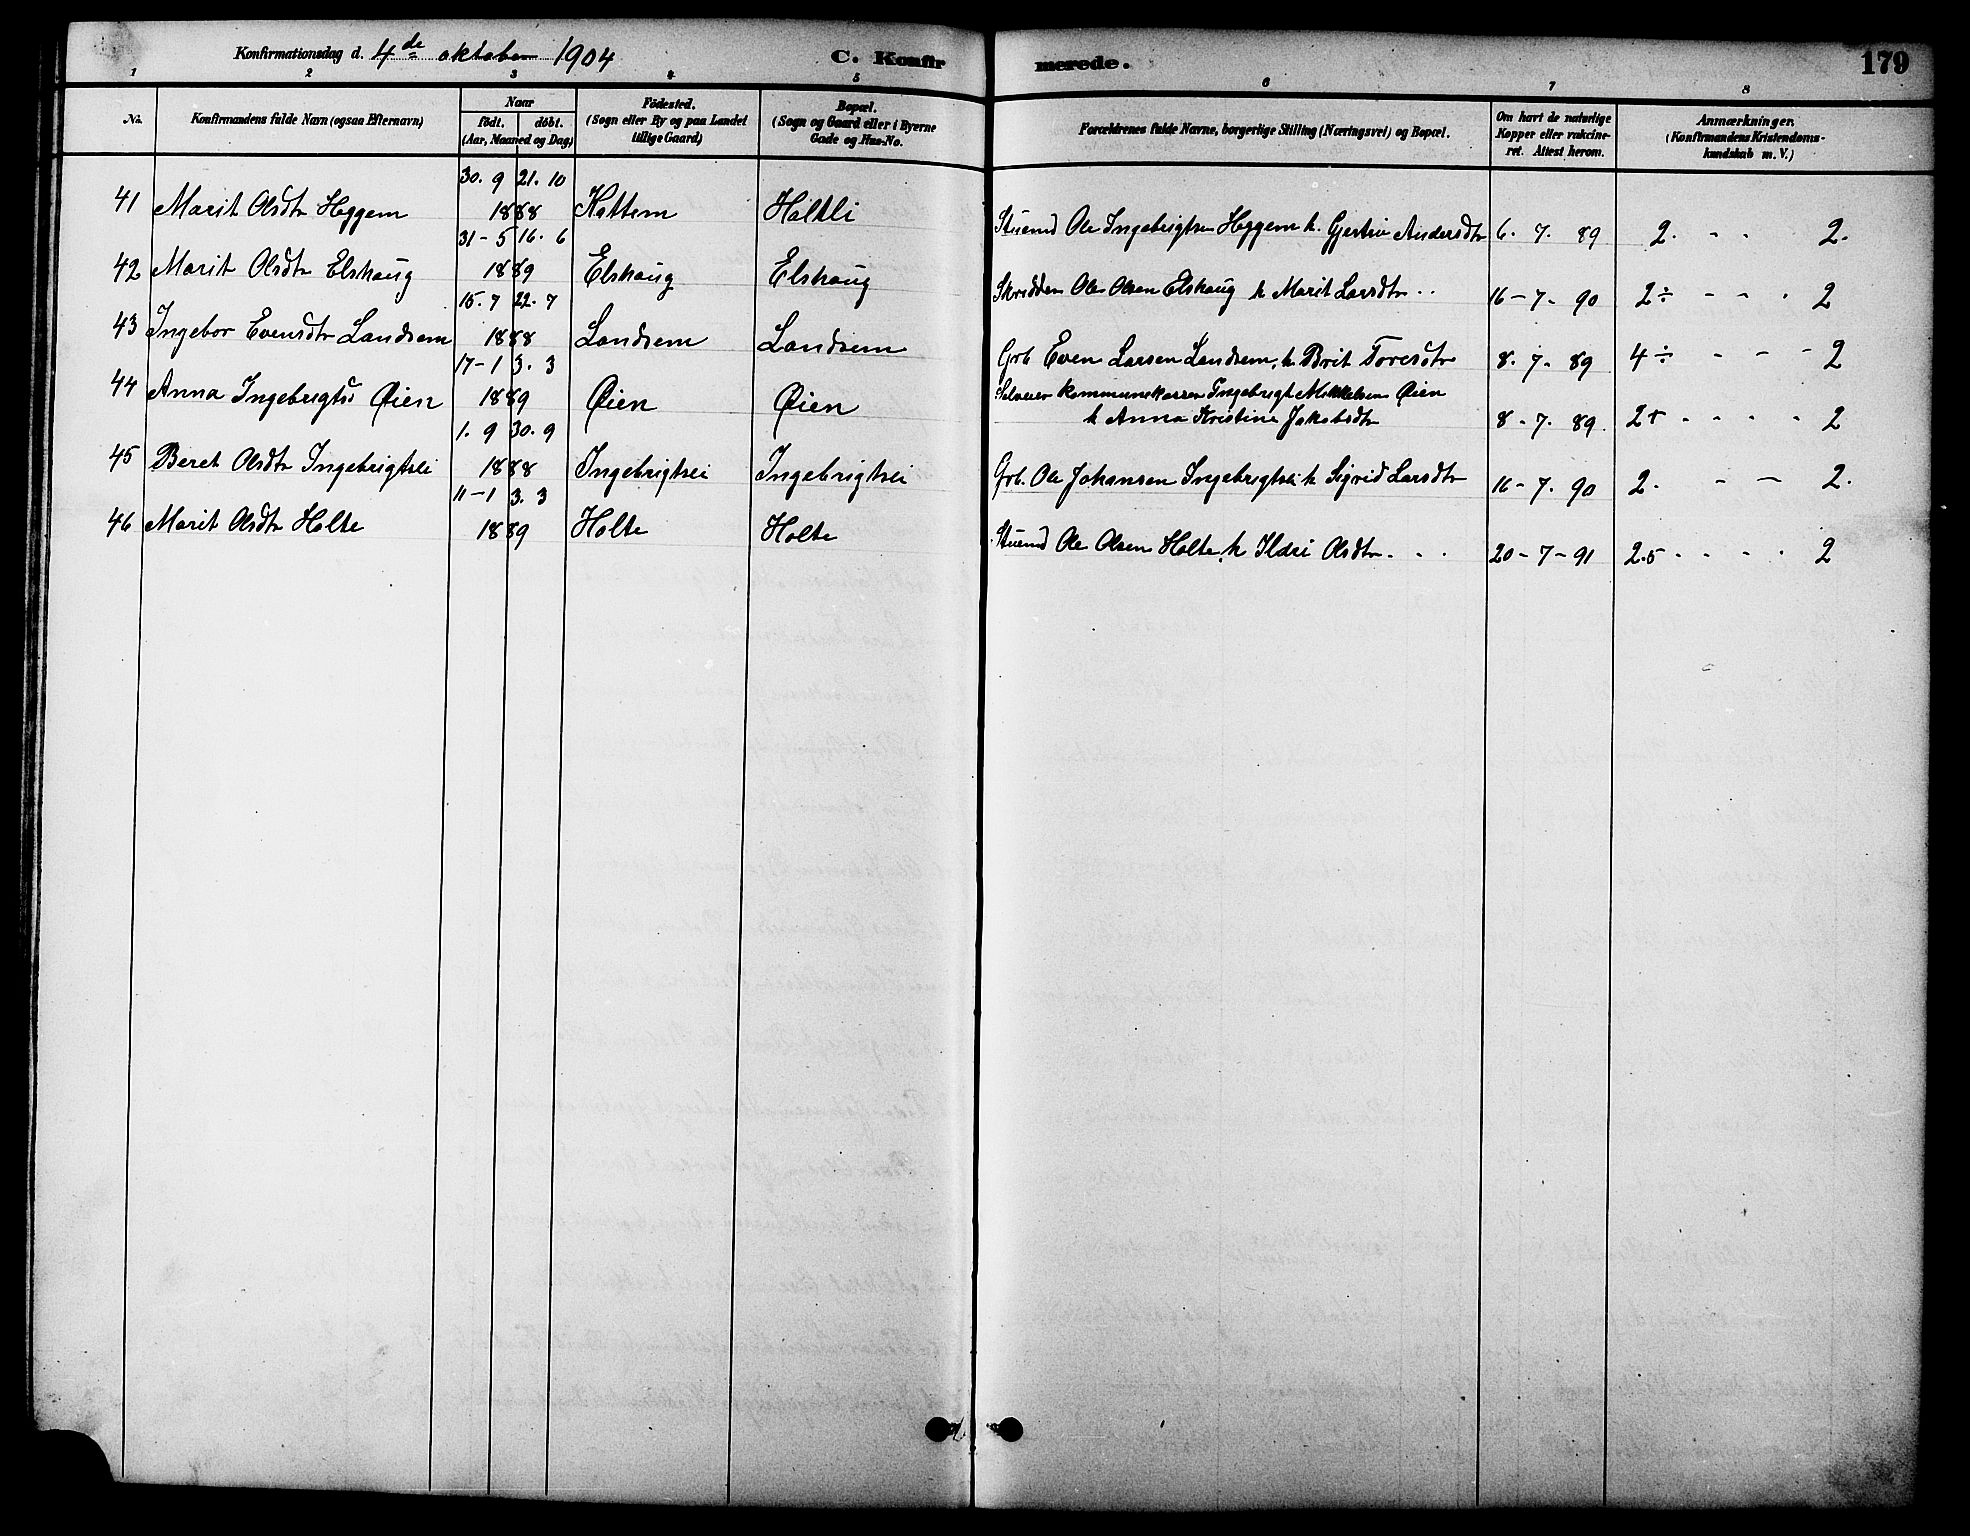 Konfirmationsdag d. 4de oktober 1904 C. Konfir merede. 179
1 2 3 4 5 6 7 8
No. Konfirmandens fulde Navn (ogsaa Efternavn) Naar födt. döbt. (Aar, Maaned og Dag) Födested. (Sogn eller By og paa Landet tillige Gaard) Bopæl. (Sogn og Gaard eller i Byerne Gade og Hus-No. Forældrenes fulde Navne, borgerlige Stilling (Næringsvei) og Bopæl. Om havt de naturlige Kopper eller vakcineret. Attest herom. Anmærkninger. (Konfirmandens Kristendomskundskab m. V.)
30. 9 21. 10
41 Marit Olsdtr Heggem 1888 Kattem Holtli Stuemd Ole Ingebrigtsen Heggem h. Gjertru Andersdtr 6. 7. 89 2. - - 2.
31 - 5 16. 6
42 Marit Olsdtr Elshaug 1889 Elshaug Elshaug Skrædder Ole Olsen Elshaug h Marit Larsdtr 16 - 7 - 90 2 ÷ - - - 2
15. 7 22. 7
43 Ingebor Evensdtr Landsem 1888 Landsem Landsem Grb. Even Larsen Landsem, h. Brit Toresdtr 8. 7 - 89 4 ÷ - - - 2
17 - 1 3. 3
44 Anna Ingebrigtsd Øien 1889 Øien Øien Selveier kommunekasser Ingebrigt Mikkelsen Øien
h Anna Kristine Jakobsdtr 8 - 7. 89. 2+ - - - - 2
1. 9 30. 9
45 Beret Olsdtr Ingebrigtsli 1888 Ingebrigtsli Ingebrigtsli Grb. Ole Johansen Ingebrigtsli h Sigrid Larsdtr 16 - 7. 90 2. - - 2.
11 - 1 3. 3
46 Marit Olsdtr Holte 1889 Holte Holte Stuemd Ole Olsen Holte h Ildri Olsdtr 20 - 7 - 91 2.5 - - - - 2